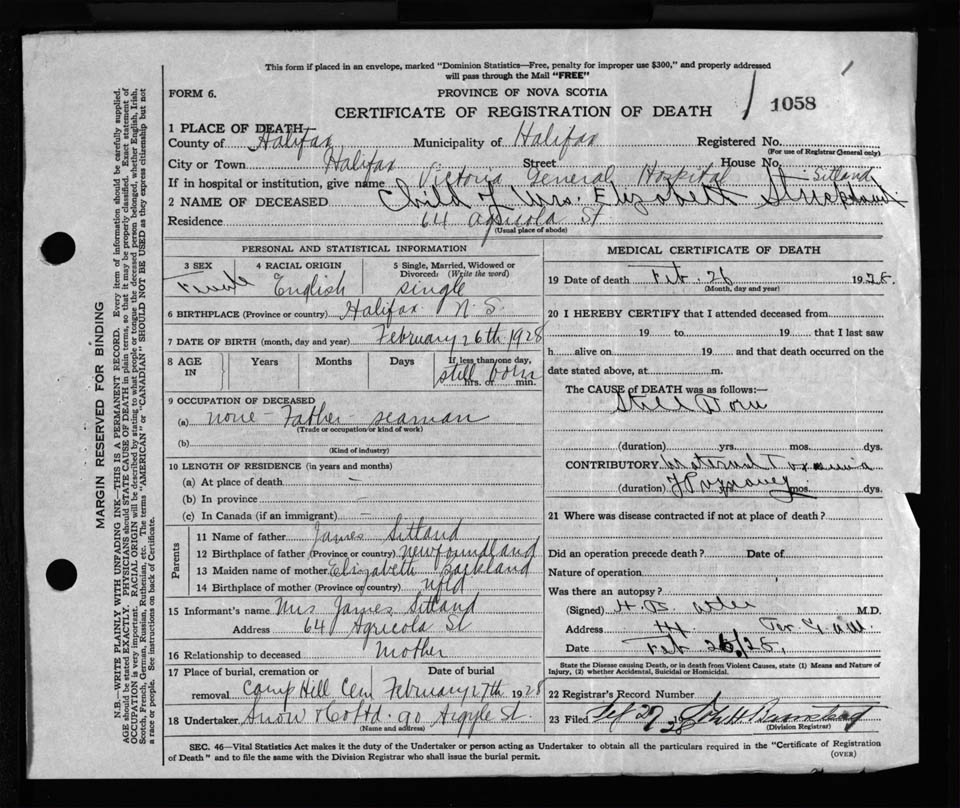 This form if placed in an envelope, marked "Dominion Statistics—Free, penalty for improper use $300," and properly addressed
will pass through the Mail "FREE"
FORM 6.
PROVINCE OF NOVA SCOTIA
CERTIFICATE OF REGISTRATION OF DEATH
1058
1 PLACE OF DEATH
County of Halifax Municipality of Halifax Registered No.
(For use of Registrar General only)
City or Town Halifax Street House No.
If in hospital or institution, give name Victoria General Hospital Sitland
2 NAME OF DECEASED Child of Mrs. Elizabeth
Residence 64 Agricola St
(Usual place of abode)
PERSONAL AND STATISTICAL INFORMATION
3 SEX 4 RACIAL ORIGIN 5 Single, Married, Widowed or Divorced: (Write the word)
Female English single
6 BIRTHPLACE (Province or country) Halifax N.S.
7 DATE OF BIRTH (month, day and year) February 26th 1928
8 AGE IN Years Months Days If less than one day, hrs. or min.
still born
9 OCCUPATION OF DECEASED
(a) none - Father - seaman
(Trade or occupation or kind of work)
(b)
(Kind of industry)
10 LENGTH OF RESIDENCE (in years and months)
(a) At place of death –
(b) In province –
(c) In Canada (if an immigrant) –
Parents
11 Name of father James Sitland
12 Birthplace of father (Province or country) Newfoundland
13 Maiden name of mother Elizabeth
14 Birthplace of mother (Province or country) Nfld
15 Informant's name Mrs James Sitland
Address 64 Agricola St
16 Relationship to deceased mother
17 Place of burial, cremation or removal Camp Hill Cem Date of burial February 27th 1928
18 Undertaker Snow & Co Ltd. 90 Argyle St.
(Name and address)
MEDICAL CERTIFICATE OF DEATH
19 Date of death Feb. 26 1928.
(Month, day and year)
20 I HEREBY CERTIFY that I attended deceased from
19 to 19 that I last saw
h alive on 19 and that death occurred on the
date stated above, at m.
The CAUSE OF DEATH was as follows:—
Still Born
(duration) yrs. mos. dys.
CONTRIBUTORY Maternal Toxemia
of Pregnancy
(duration) yrs. mos. dys.
21 Where was disease contracted if not at place of death?
Did an operation precede death? Date of
Nature of operation
Was there an autopsy?
(Signed) H. B. Atlee M.D.
Address
Date Feb 26/28.
State the Disease causing Death, or in death from Violent Causes, state (1) Means and Nature of
Injury, (2) whether Accidental, Suicidal or Homicidal.
22 Registrar's Record Number
23 Filed 27 1928
(Division Registrar)
SEC. 46—Vital Statistics Act makes it the duty of the Undertaker or person acting as Undertaker to obtain all the particulars required in the "Certificate of Registration
of Death" and to file the same with the Division Registrar who shall issue the burial permit.
(OVER)
MARGIN RESERVED FOR BINDING
N.B.—WRITE PLAINLY WITH UNFADING INK—THIS IS A PERMANENT RECORD. Every item of information should be carefully supplied.
AGE should be stated EXACTLY. PHYSICIANS should STATE CAUSE OF DEATH in plain terms, so that it may be properly classified. Exact statement of
OCCUPATION is very important. RACIAL ORIGIN will be described by stating to what people or tongue the deceased person belonged, whether English, Irish,
Scotch, French, German, Russian, Ruthenian, etc. The terms "AMERICAN" or "CANADIAN" SHOULD NOT BE USED as they express citizenship but not
a race or people. See instructions on back of Certificate.